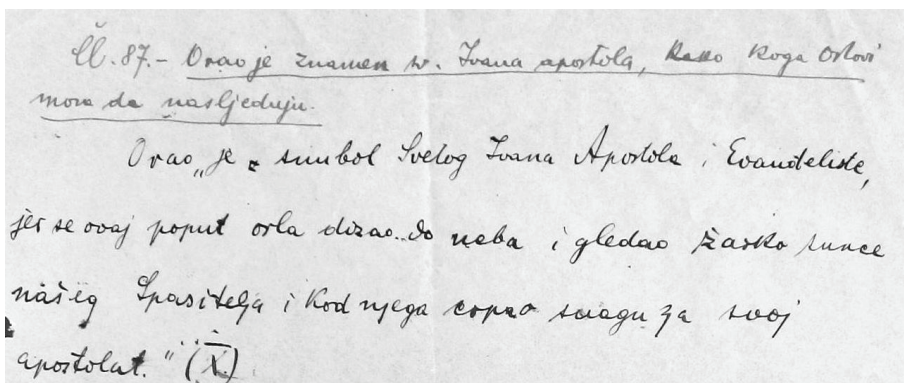 Čl. 87.- Orao je znamen sv. Ivana apostola, kako koga Orlovi
mora da nasljeduju.
Orao „je simbol Svetog Ivana Apostola i Evanđeliste,
jer se ovaj poput orla dizao do neba i gledao žarko sunce
našeg Spasitelja i kod njega crpao snagu za svoj
apostolat." (X)